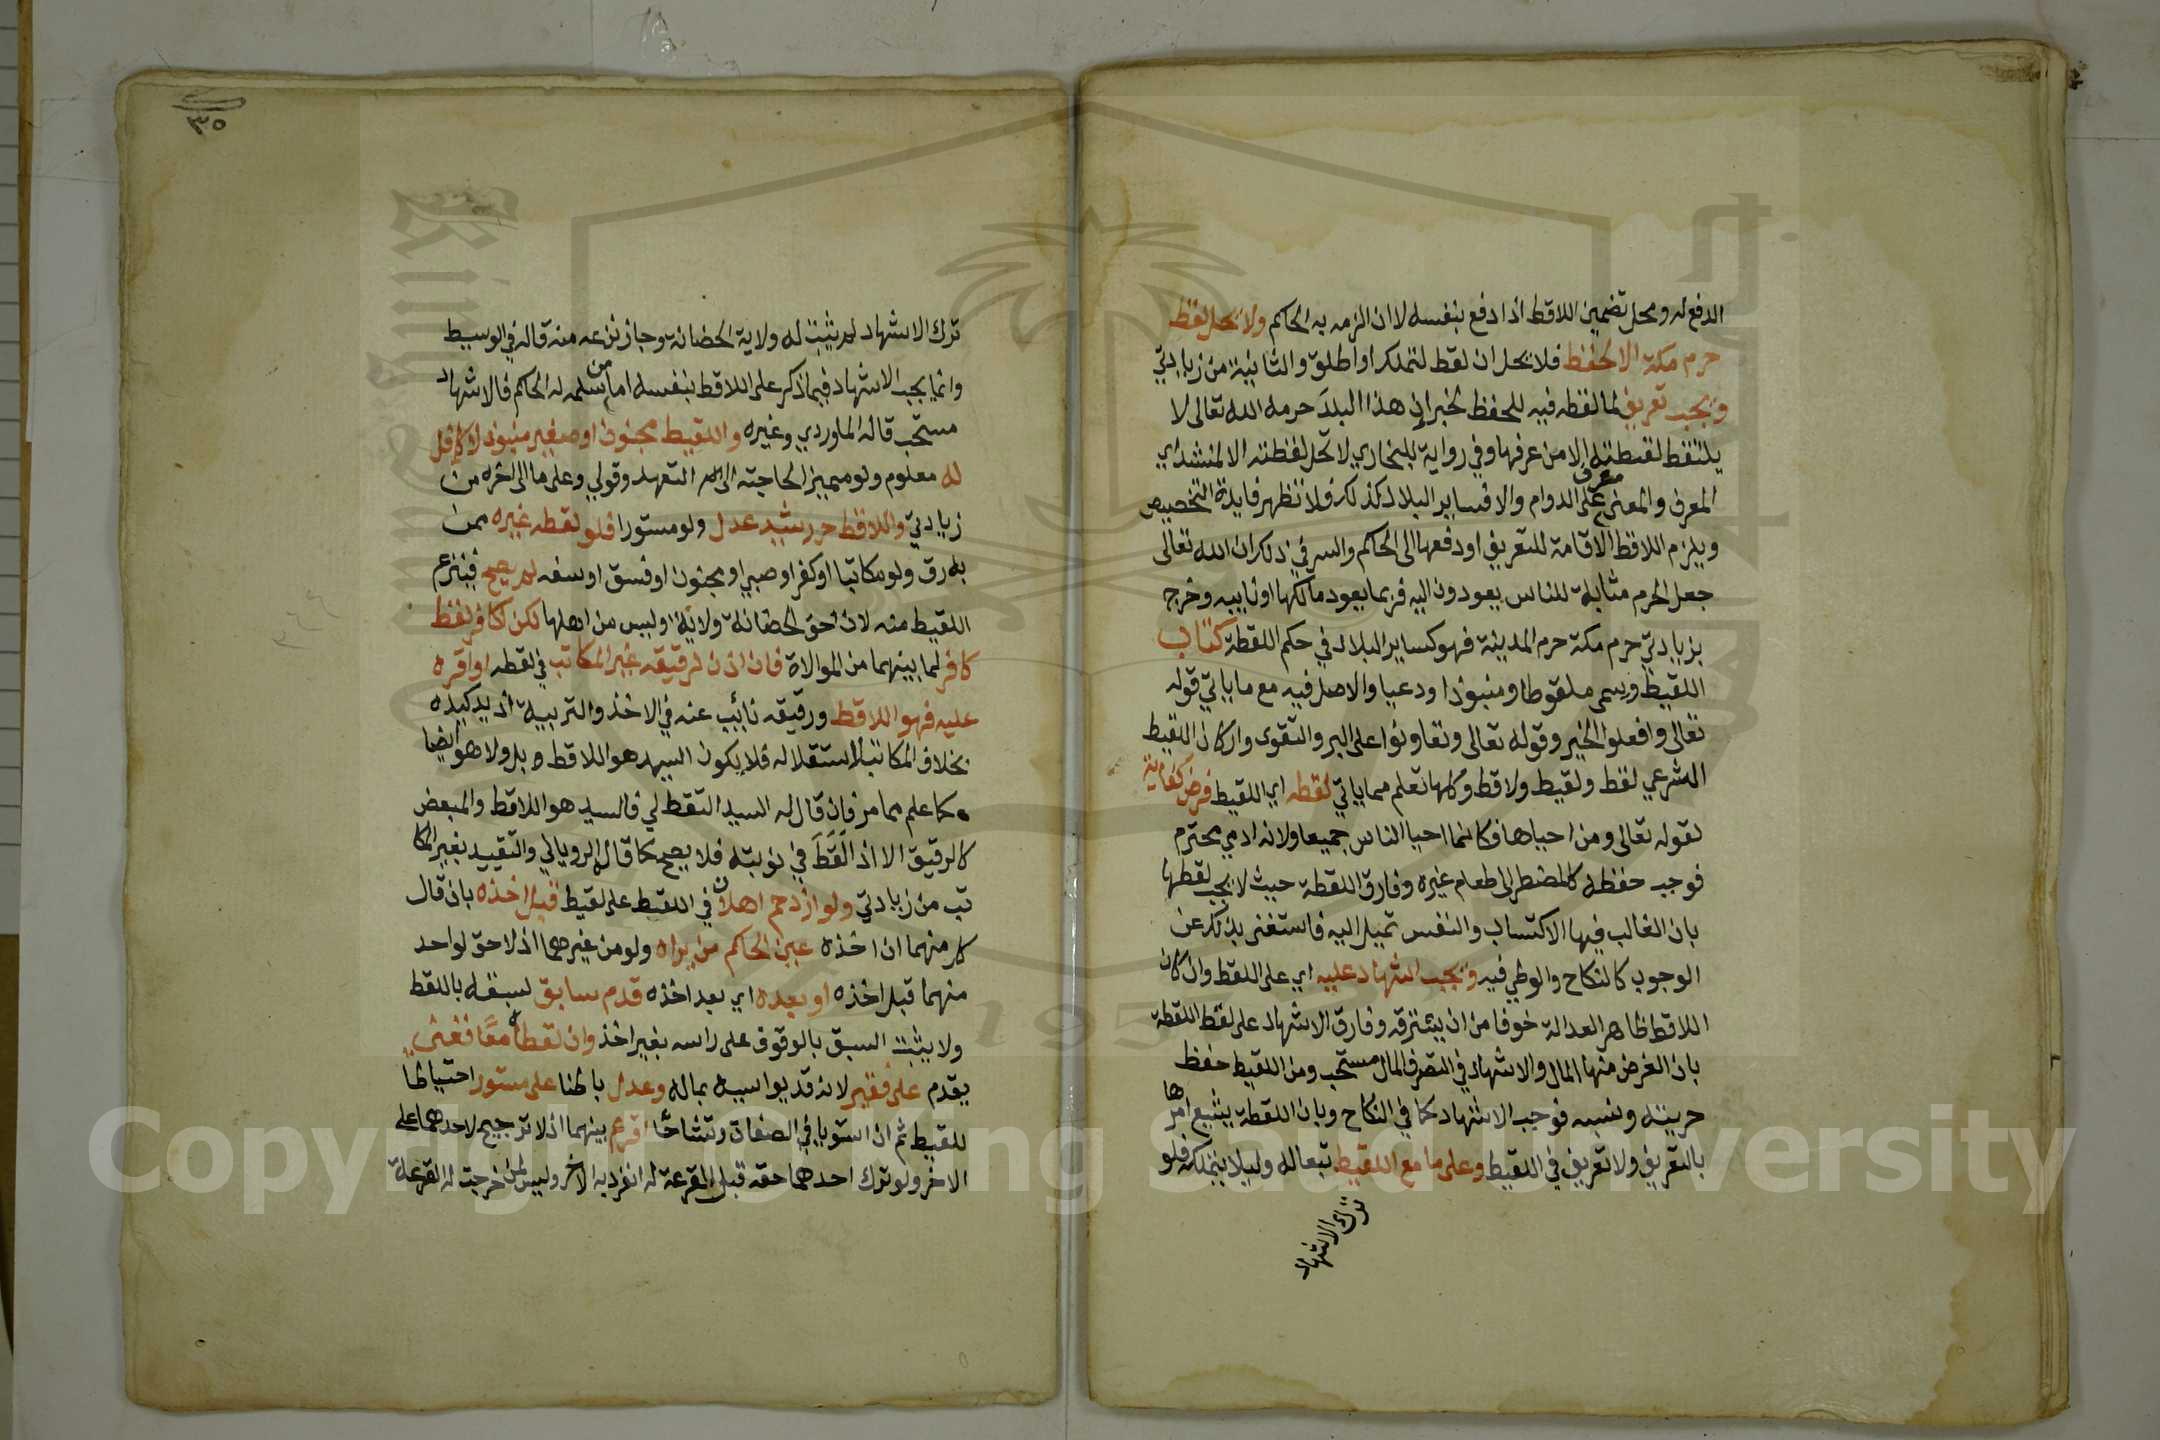 الدفع له ومحل تضمين اللاقط اذا دفع بنفسه لا ان الزمه به الحاكم ولا يحل لقط
حرم مكة الا لحفظ فلا يحل ان لقط لتملك او اطلق والثانية من زيادتي
ويجب تعريف لما لقطه فيه للحفظ لخبر ان هذا البلد حرمه الله تعالى لا
يلتقط لقطته الا من عرفها وفي رواية للبخاري لا تحل لقطته الا لمنشد اي
لمعرف والمعنى معرف على الدوام والا فساير البلاد كذلك فلا تظهر فايدة التخصيص
ويلزم اللاقط الاقامة للتعريف او دفعها الى الحاكم والسر في ذلك ان الله تعالى
جعل الحرم مثابة للناس يعودون اليه فربما يعود مالكها او نايبه وخرج
بزيادتي حرم مكة حرم المدينة فهو كساير البلاد في حكم اللقطة كتاب
اللقيط ويسمى ملقوطا ومنبوذا ودعيا والاصل فيه مع ما ياتي قوله
تعالى وافعلوا الخير وقوله تعالى وتعاونوا على البر والتقوى واركان اللقيط
الشرعي لقط ولقيط ولاقط وكلها تعلم مما ياتي لقطه اي اللقيط فرض كفاية
لقوله تعالى ومن احياها فكانما احيا الناس جميعا ولانه ادمي محترم
فوجب حفظه كالمضطر الى طعام غيره وفارق اللقطة حيث لا يجب لقطها
بان الغالب فيها الاكتساب والنفس تميل اليه فاستغنى بذلك عن
الوجوب كالنكاح والوطي فيه ويجب اشهاد عليه اي على اللقط وان كان
اللاقط ظاهر العدالة خوفا من ان يسترقه وفارق الاشهاد على لقط اللقطة
بان الغرض منها المال والاشهاد في التصرف المالي مستحب ومن اللقيط حفظ
حريته ونسبه فوجب الاشهاد كما في النكاح وبان اللقطة يشيع امرها
بالتعريف ولا تعريف في اللقيط وعلى ما مع اللقيط تبعا له وليلا يتملكه فلو
ترك الاشهاد
٣٥
ترك الاشهاد لم يثبت له ولاية الحضانة وجاز نزعه منه قاله في الوسيط
وانما يجب الاشهاد فيما ذكر على اللاقط بنفسه اما من سلمه له الحاكم فالاشهاد
مستحب قاله الماوردي وغيره واللقيط مجنون او صغير منبوذ لا كافل
له معلوم ولو مميز الحاجته الى التعهد وقولي وعلى ما الى اخره من
زيادتي واللاقط حر رشيد عدل ولو مستورا فلو لقطه غيره ممن
به رق ولو مكاتبا او كفر او صبى او مجنون او فسق او سفه لم يصح فينزع
اللقيط منه لان حق الحضانة ولاية وليس من اهلها لكن لكافر لقط
كافر لما بينهما من الموالاة فان اذن لرقيقه غير المكاتب في لقطه او اقره
عليه فهو اللاقط ورقيقه نائب عنه في الاخذ والتربية اذ يده كيده
بخلاف المكاتب لاستقلاله فلا يكون السيد هو اللاقط بل ولا هو ايضا
كما علم مما مر فان قال له السيد التقط لي فالسيد هو اللاقط والمبعض
كالرقيق الا اذ القط في نوبته فلا يصح كما قاله الروياني والتقييد بغير المكا
تب من زيادتي ولو ازدحم اهلان في اللقيط على لقيط قبل اخذه بان قال
كل منهما ان اخذه عين الحاكم من يراه ولو من غيرهما اذ لا حق لواحد
منهما قبل اخذه او بعده اي بعد اخذه قدم سابق لسبقه باللقط
ولا يثبت السبق بالوقوف على راسه بغير اخذ وان لقطاه معا فغني
يقدم على فقير لانه قد يواسيه بماله وعدل باطنا على مستور احتياطا
للقيط ثم ان استويا في الصفات وتشاحا اقرع بينهما اذ لا ترجيح لاحدهما على
الاخر ولو ترك احدهما حقه قبل القرعة له انفرد به الاخر وليس لمن خرجت له القرعة
Copyright © King Saud University
195